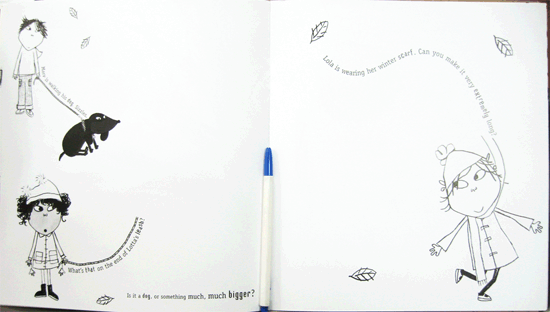 is walking his dog,
What's that on the end of Lotta's leash?
Is it a dog, or something much, much bigger?
Lola is wearing her winter scarf. Can you make it very extremely long?